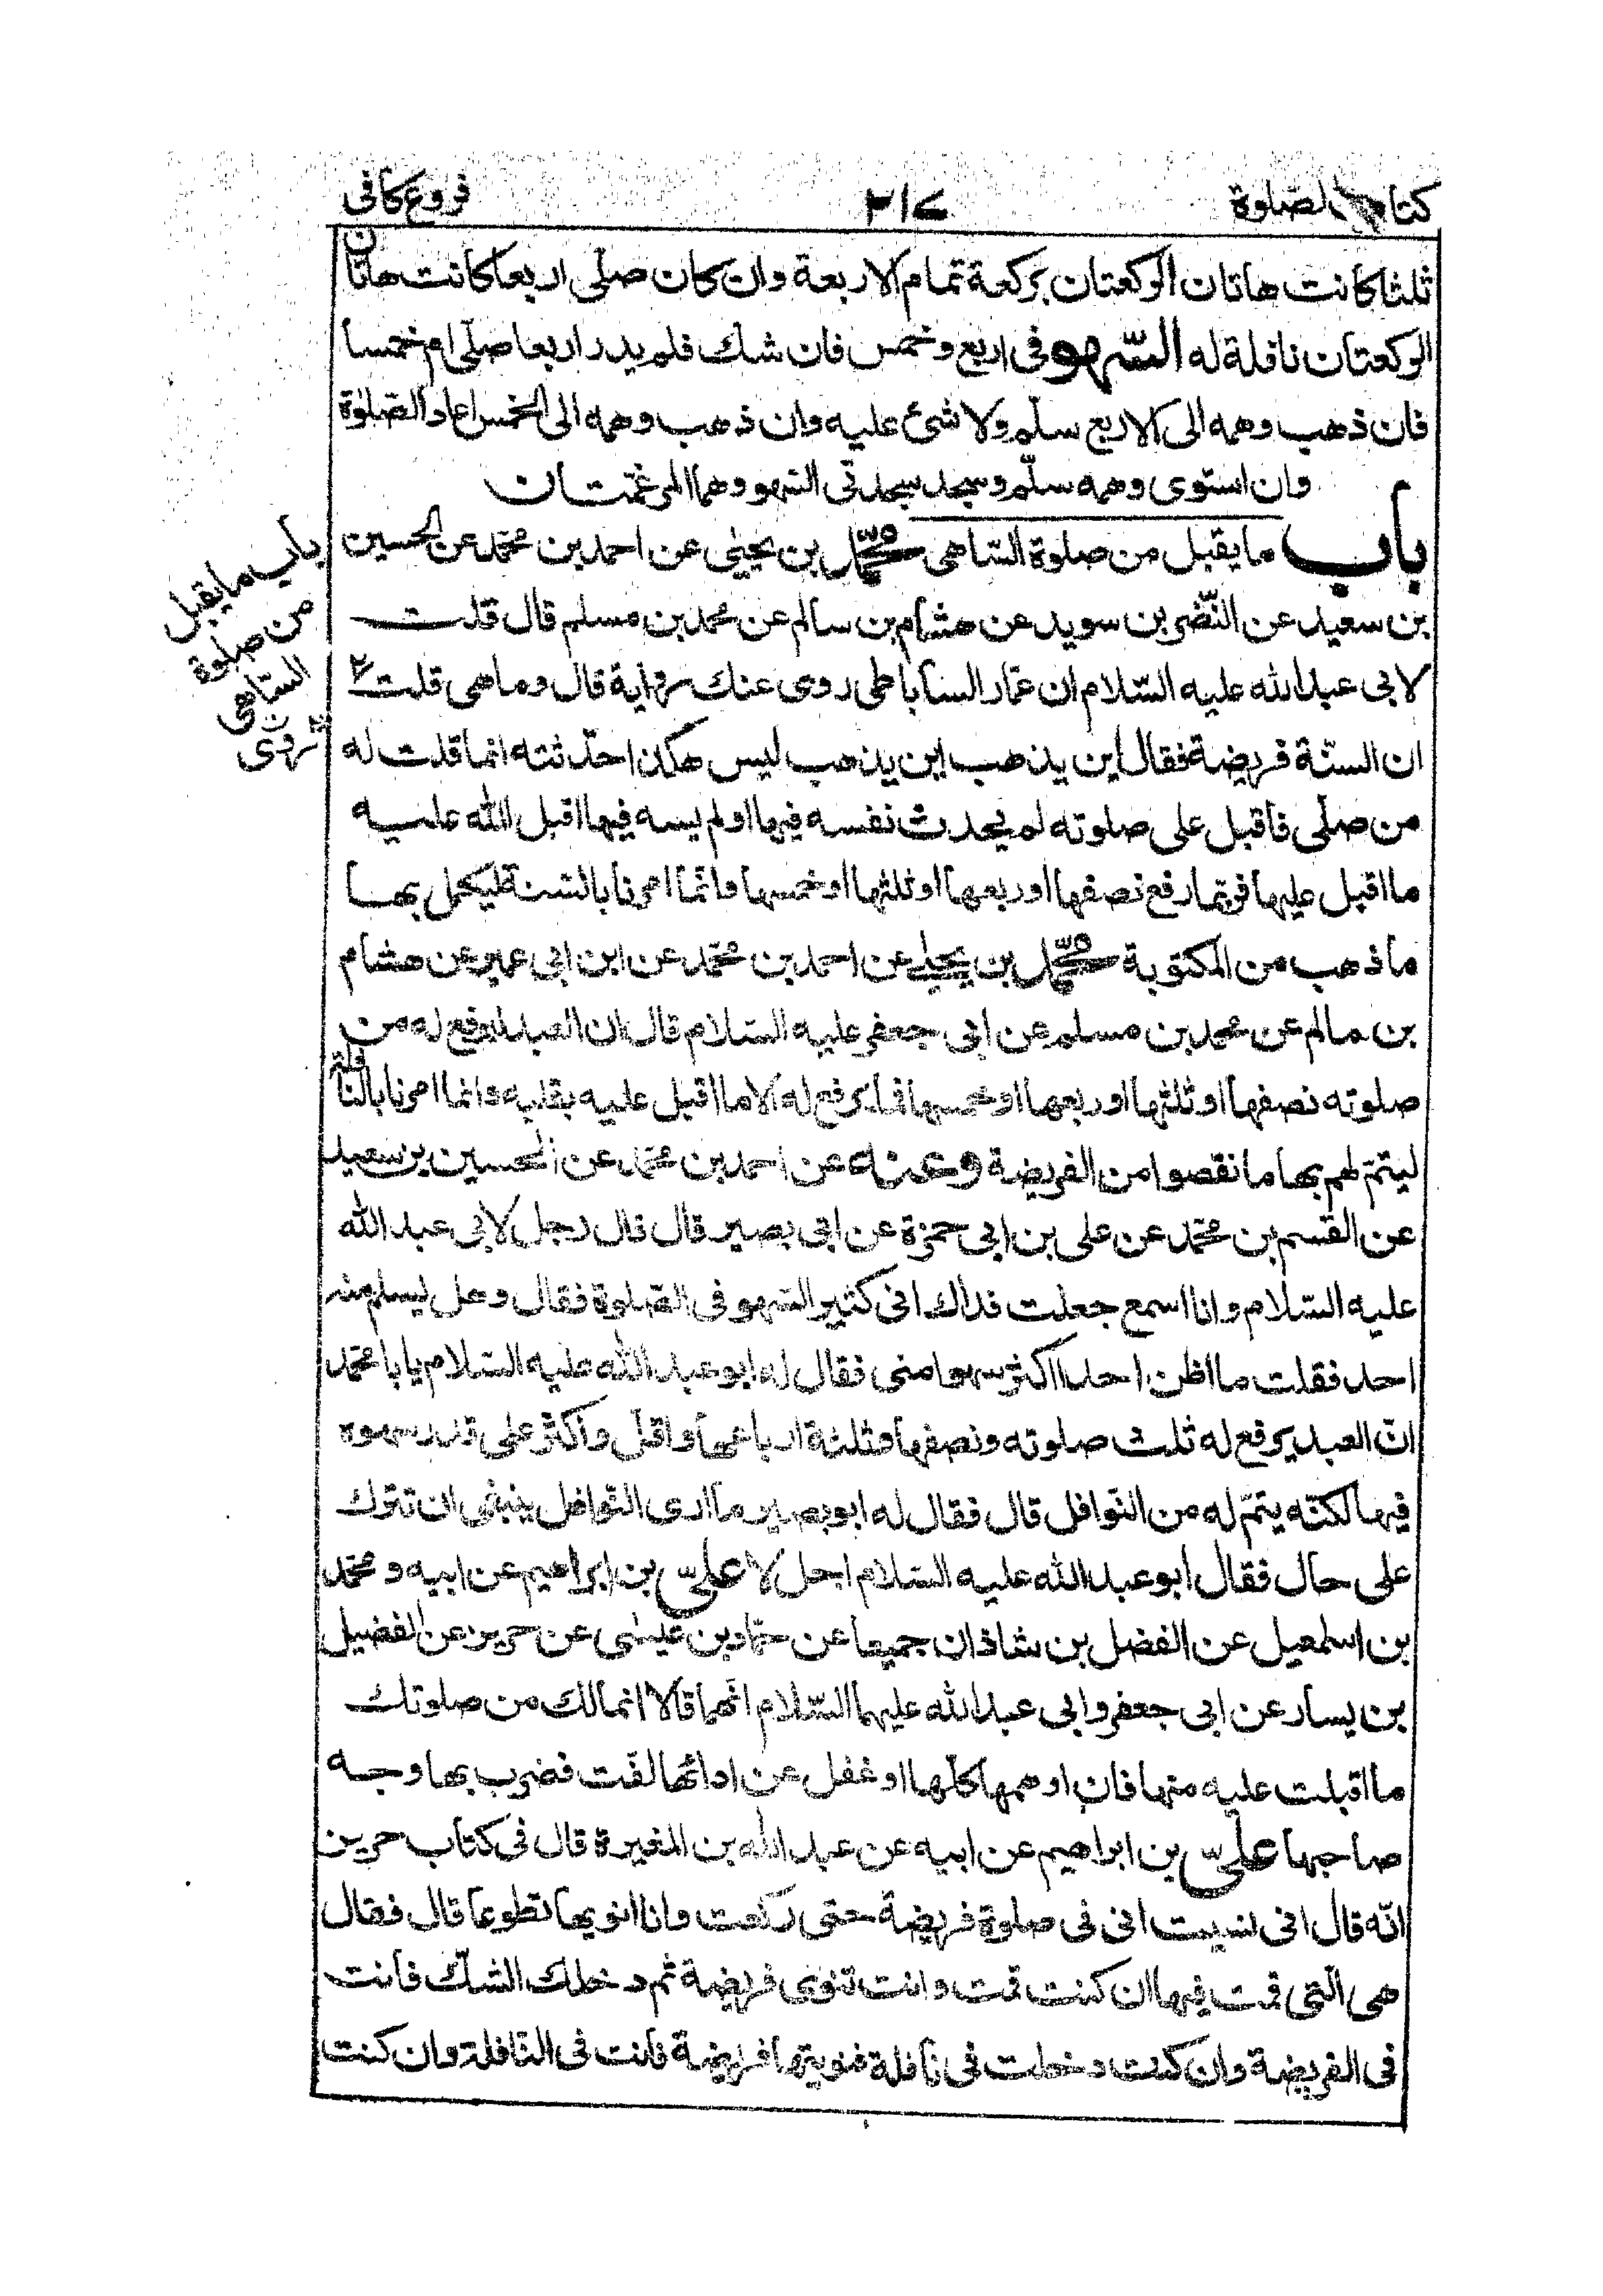 كتاب الصّلوة
٢١٧
فروع كافى
ثلثا كانت هاتان الركعتان بركعة تمام الاربعة وان كان صلّى اربعا كانت هاتان
الركعتان نافلة له السّهو فى اربع وخمس فان شك فلم يدر اربعا صلّى ام خمسا
فان ذهب وهمه الى الاربع سلّم ولا شئ عليه وان ذهب وهمه الى الخمس اعاد الصّلوة
وان استوى وهمه سلّم وسجد سجدتى السّهو وهما المرغمتان
باب ما يقبل من صلوة السّاهى محمّد بن يحيى عن احمد بن محمّد عن الحسين
بن سعيد عن النّضر بن سويد عن هشام بن سالم عن محمد بن مسلم قال قلت
لابى عبد الله عليه السّلام ان عمّار الساباطى روى عنك رواية قال وما هى قلت
ان السنّة فريضة فقال اين يذهب اين يذهب ليس هكذا حدّثته انما قلت له
من صلّى فاقبل على صلوته لم يحدث نفسه فيها او لم يسه فيها اقبل الله عليه
ما اقبل عليها فربّما رفع نصفها او ربعها او ثلثها او خمسها وانّما امرنا بالسّنة ليكمل بها
ما ذهب من المكتوبة محمّد بن يحيى عن احمد بن محمّد عن ابن ابى عمير عن هشام
بن سالم عن محمد بن مسلم عن ابى جعفر عليه السّلام قال ان العبد ليرفع له من
صلوته نصفها او ثلثها او ربعها او خمسها فما يرفع له الا ما اقبل عليه بقلبه وانما امرنا بالنافلة
ليتمّ لهم بها ما نقصوا من الفريضة وعنه عن احمد بن محمّد عن الحسين بن سعيد
عن القسم بن محمّد عن على بن ابى حمزة عن ابى بصير قال قال رجل لابى عبد الله
عليه السّلام وانا اسمع جعلت فداك انى كثير السّهو فى الصّلوة فقال وهل يسلم منه
احد فقلت ما اظن احدا اكثر سهوا منى فقال له ابو عبد الله عليه السّلام يابا محمّد
انّ العبد يرفع له ثلث صلوته ونصفها وثلثة ارباعها واقلّ واكثر على قدر سهوه
فيها لكنّه يتمّ له من النّوافل قال فقال له ابو بصير ما ارى النّوافل ينبغى ان تترك
على حال فقال ابو عبد الله عليه السّلام اجل لا علىّ بن ابراهيم عن ابيه و محمّد
بن اسمعيل عن الفضل بن شاذان جميعا عن حمّاد بن عيسى عن حريز عن الفضيل
بن يسار عن ابى جعفر وابى عبد الله عليهما السّلام انّهما قالا انما لك من صلوتك
ما اقبلت عليه منها فان اوهمها كلّها او غفل عن ادائها لفّت فضرب بها وجه
صاحبها علىّ بن ابراهيم عن ابيه عن عبد الله بن المغيرة قال فى كتاب حريز
انّه قال انى نسيت انى فى صلوة فريضة حتى ركعت وانا انويها تطوعا قال فقال
هى الّتى قمت فيها ان كنت قمت وانت تنوى فريضة ثم دخلك الشكّ فانت
فى الفريضة وان كنت دخلت فى نافلة فنويتها فريضة فانت فى النّافلة وان كنت
باب ما يقبل
من صلوة
السّاهى